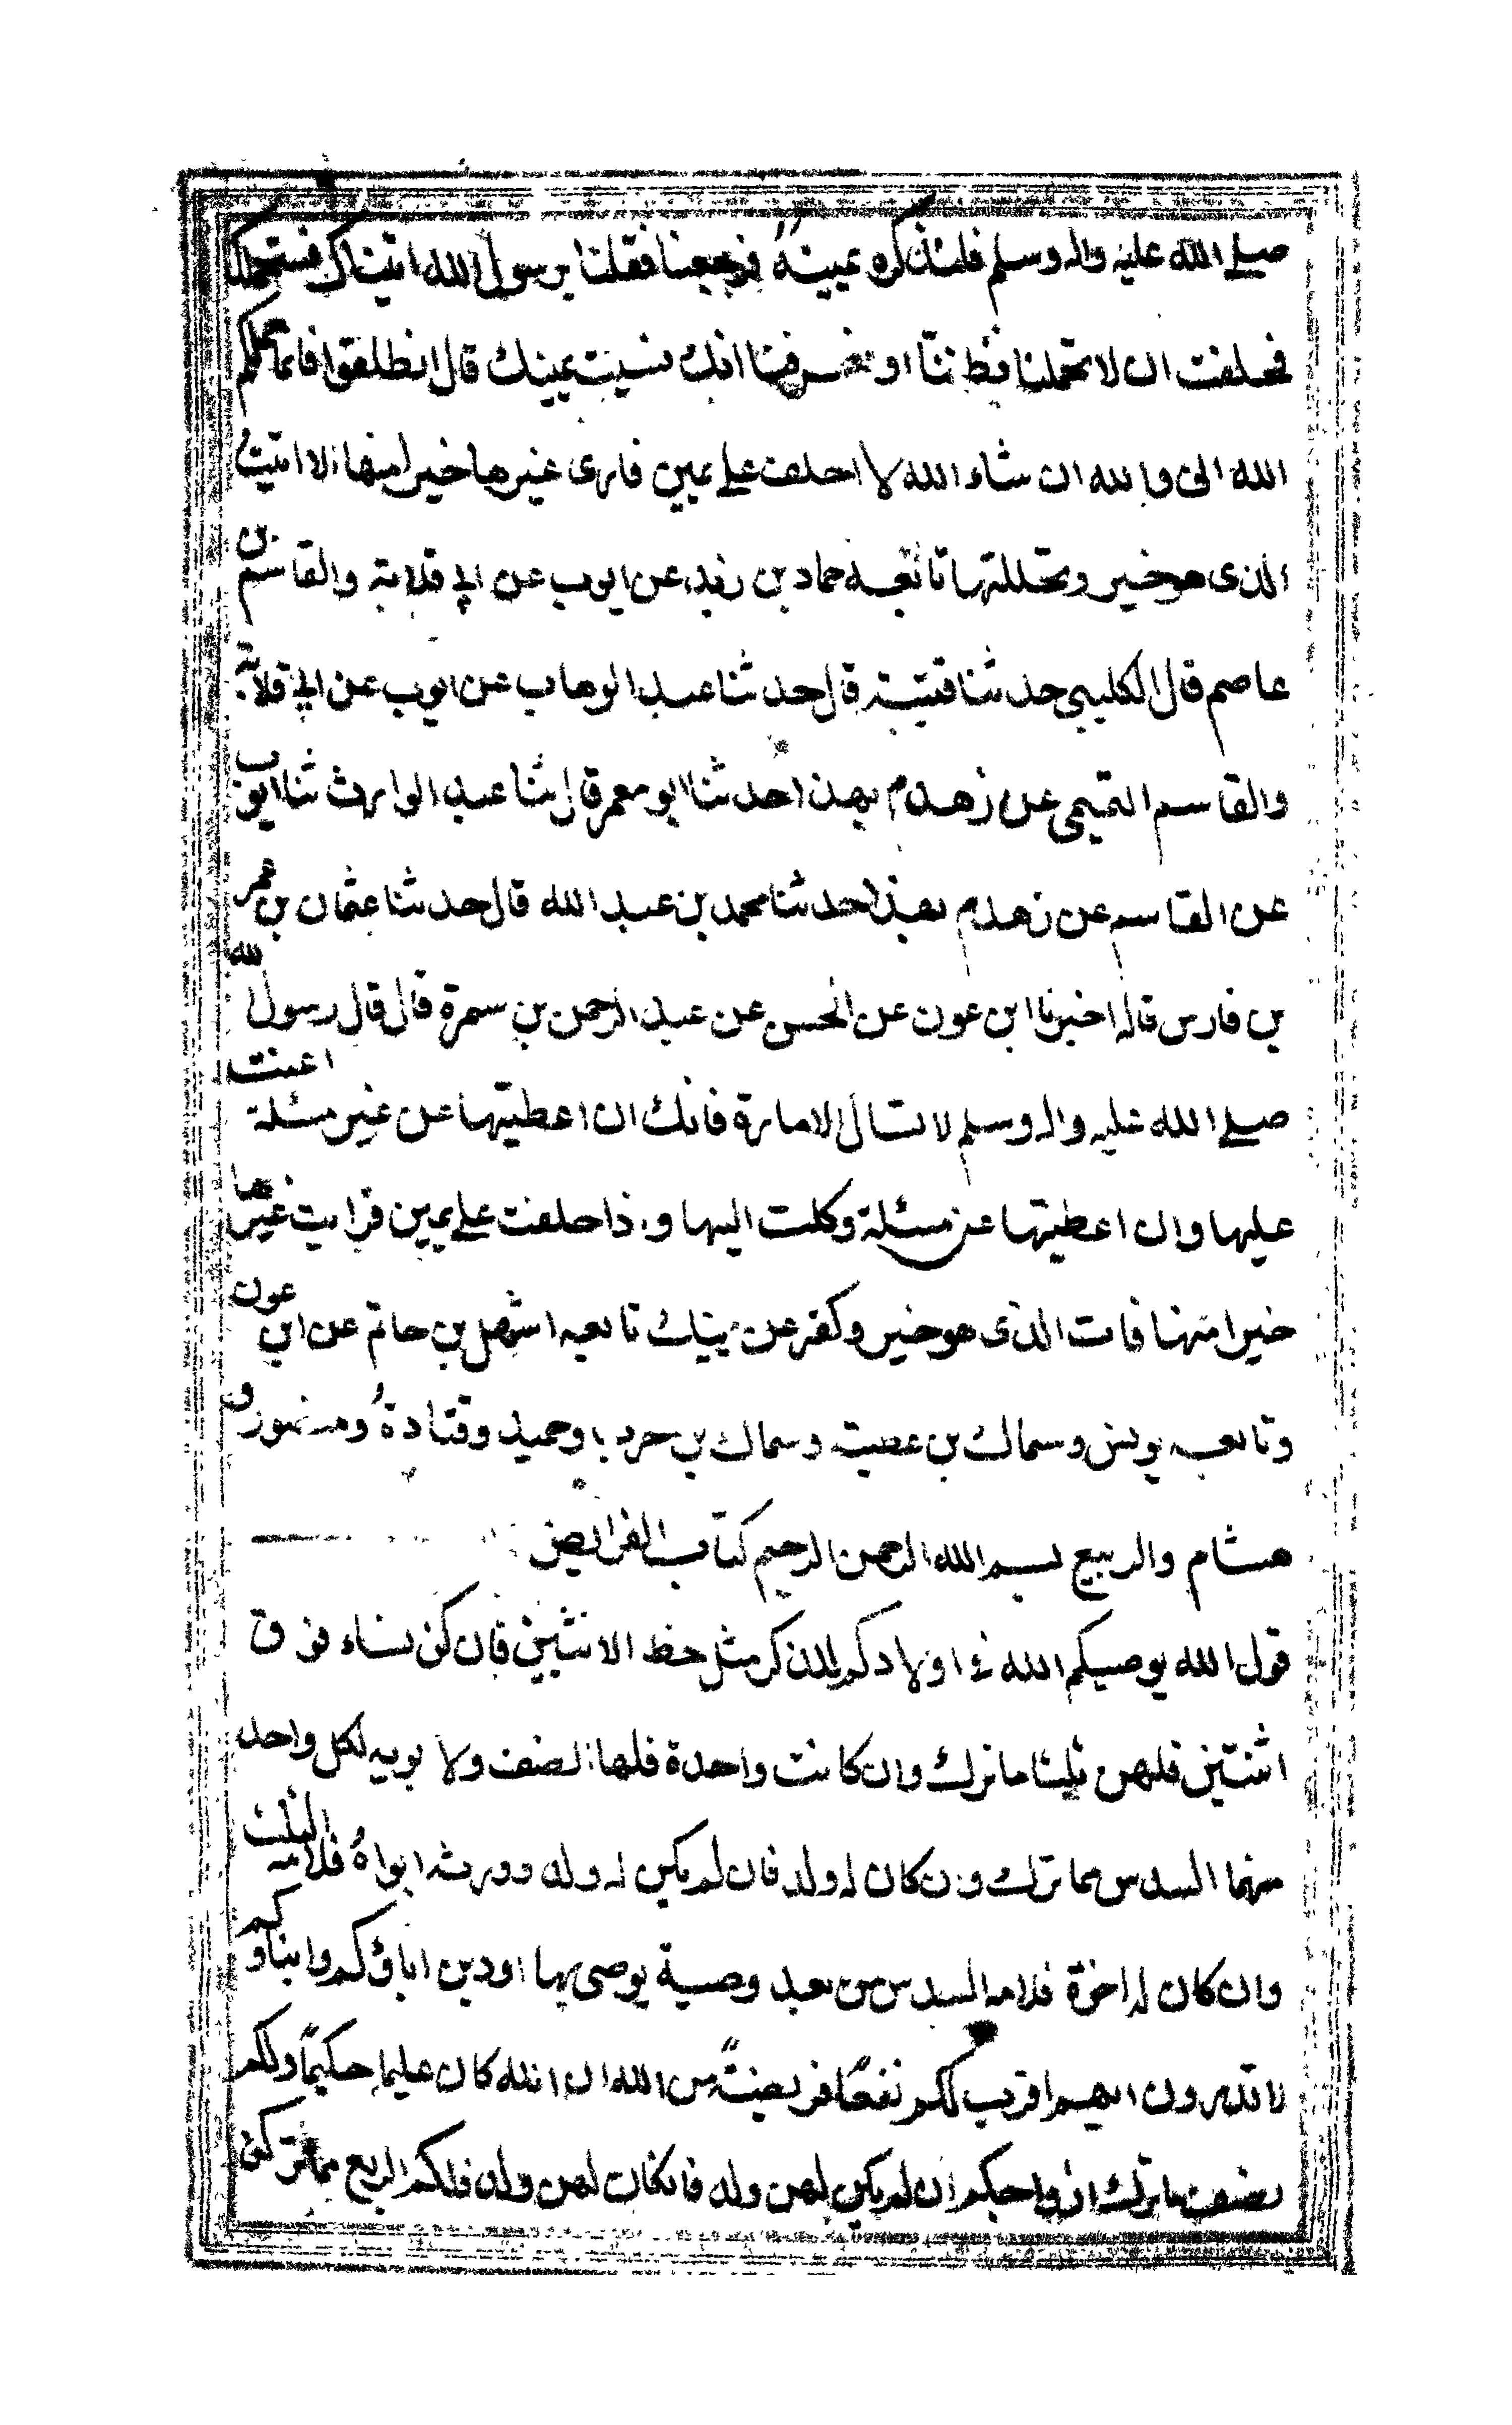 صلى الله عليه واله وسلم فلنذكره يمينهً فرجعنا فقلنا يرسول الله اتيناك نستحملك
فحلفت ان لا تحملنا فظننا او فعرفنا انك نسيت يمينك قال انطلقوا فانما حملكم
الله انى والله ان شاء الله لا احلف على يمين فارى غيرها خيرا منها الا اتيت
الذى هو خير وتحللتها تابعه حماد بن زيد عن ايوب عن ابى قلابة والقاسم بن
عاصم قال الكليبى حدثنا قتيبة قال حدثنا عبد الوهاب عن ايوب عن ابى قلابة
والقاسم التميمى عن زهدم بهذا حدثنا ابو معمر قال ثنا عبد الوارث ثنا ايوب
عن القاسم عن زهدم بهذا حدثنا محمد بن عبد الله قال حدثنا عثمان بن عمر
بن فارس قال اخبرنا ابن عون عن الحسن عن عبد الرحمن بن سمرة قال قال رسول الله
صلى الله عليه واله وسلم لا تسال الامارة فانك ان اعطيتها عن غير مسئلة اعنت
عليها وان اعطيتها عن مسئلة وكلت اليها واذا حلفت على يمين فرايت غيرها
خيرا منها فات الذى هو خير وكفر عن يمينك تابعه اشهل بن حاتم عن ابن عون
وتابعه يونس وسماك بن عطية وسماك بن حرب وحميد وقتادة ومنصور و
هشام والربيع بسم الله الرحمن الرحيم كتاب الفرايض
قول الله يوصيكم الله فى اولادكم للذكر مثل حظ الانثيين فان كن نساء فوق
اثنتين فلهن ثلثا ما ترك وان كانت واحدة فلها النصف ولابويه لكل واحد
منهما السدس مما ترك ان كان له ولد فان لم يكن له ولد وورثه ابواهُ فلامه الثلث
وان كان له اخوة فلامه السدس من بعد وصية يوصى بها اودين اباؤكم وابناوكم
لا تدرون ايهم اقرب لكم نفعًا فريضةً من الله ان الله كان عليما حكيمًا ولكم
نصف ما ترك ازواجكم ان لم يكن لهن ولد فان كان لهن ولد فلكم الربع مما تركن